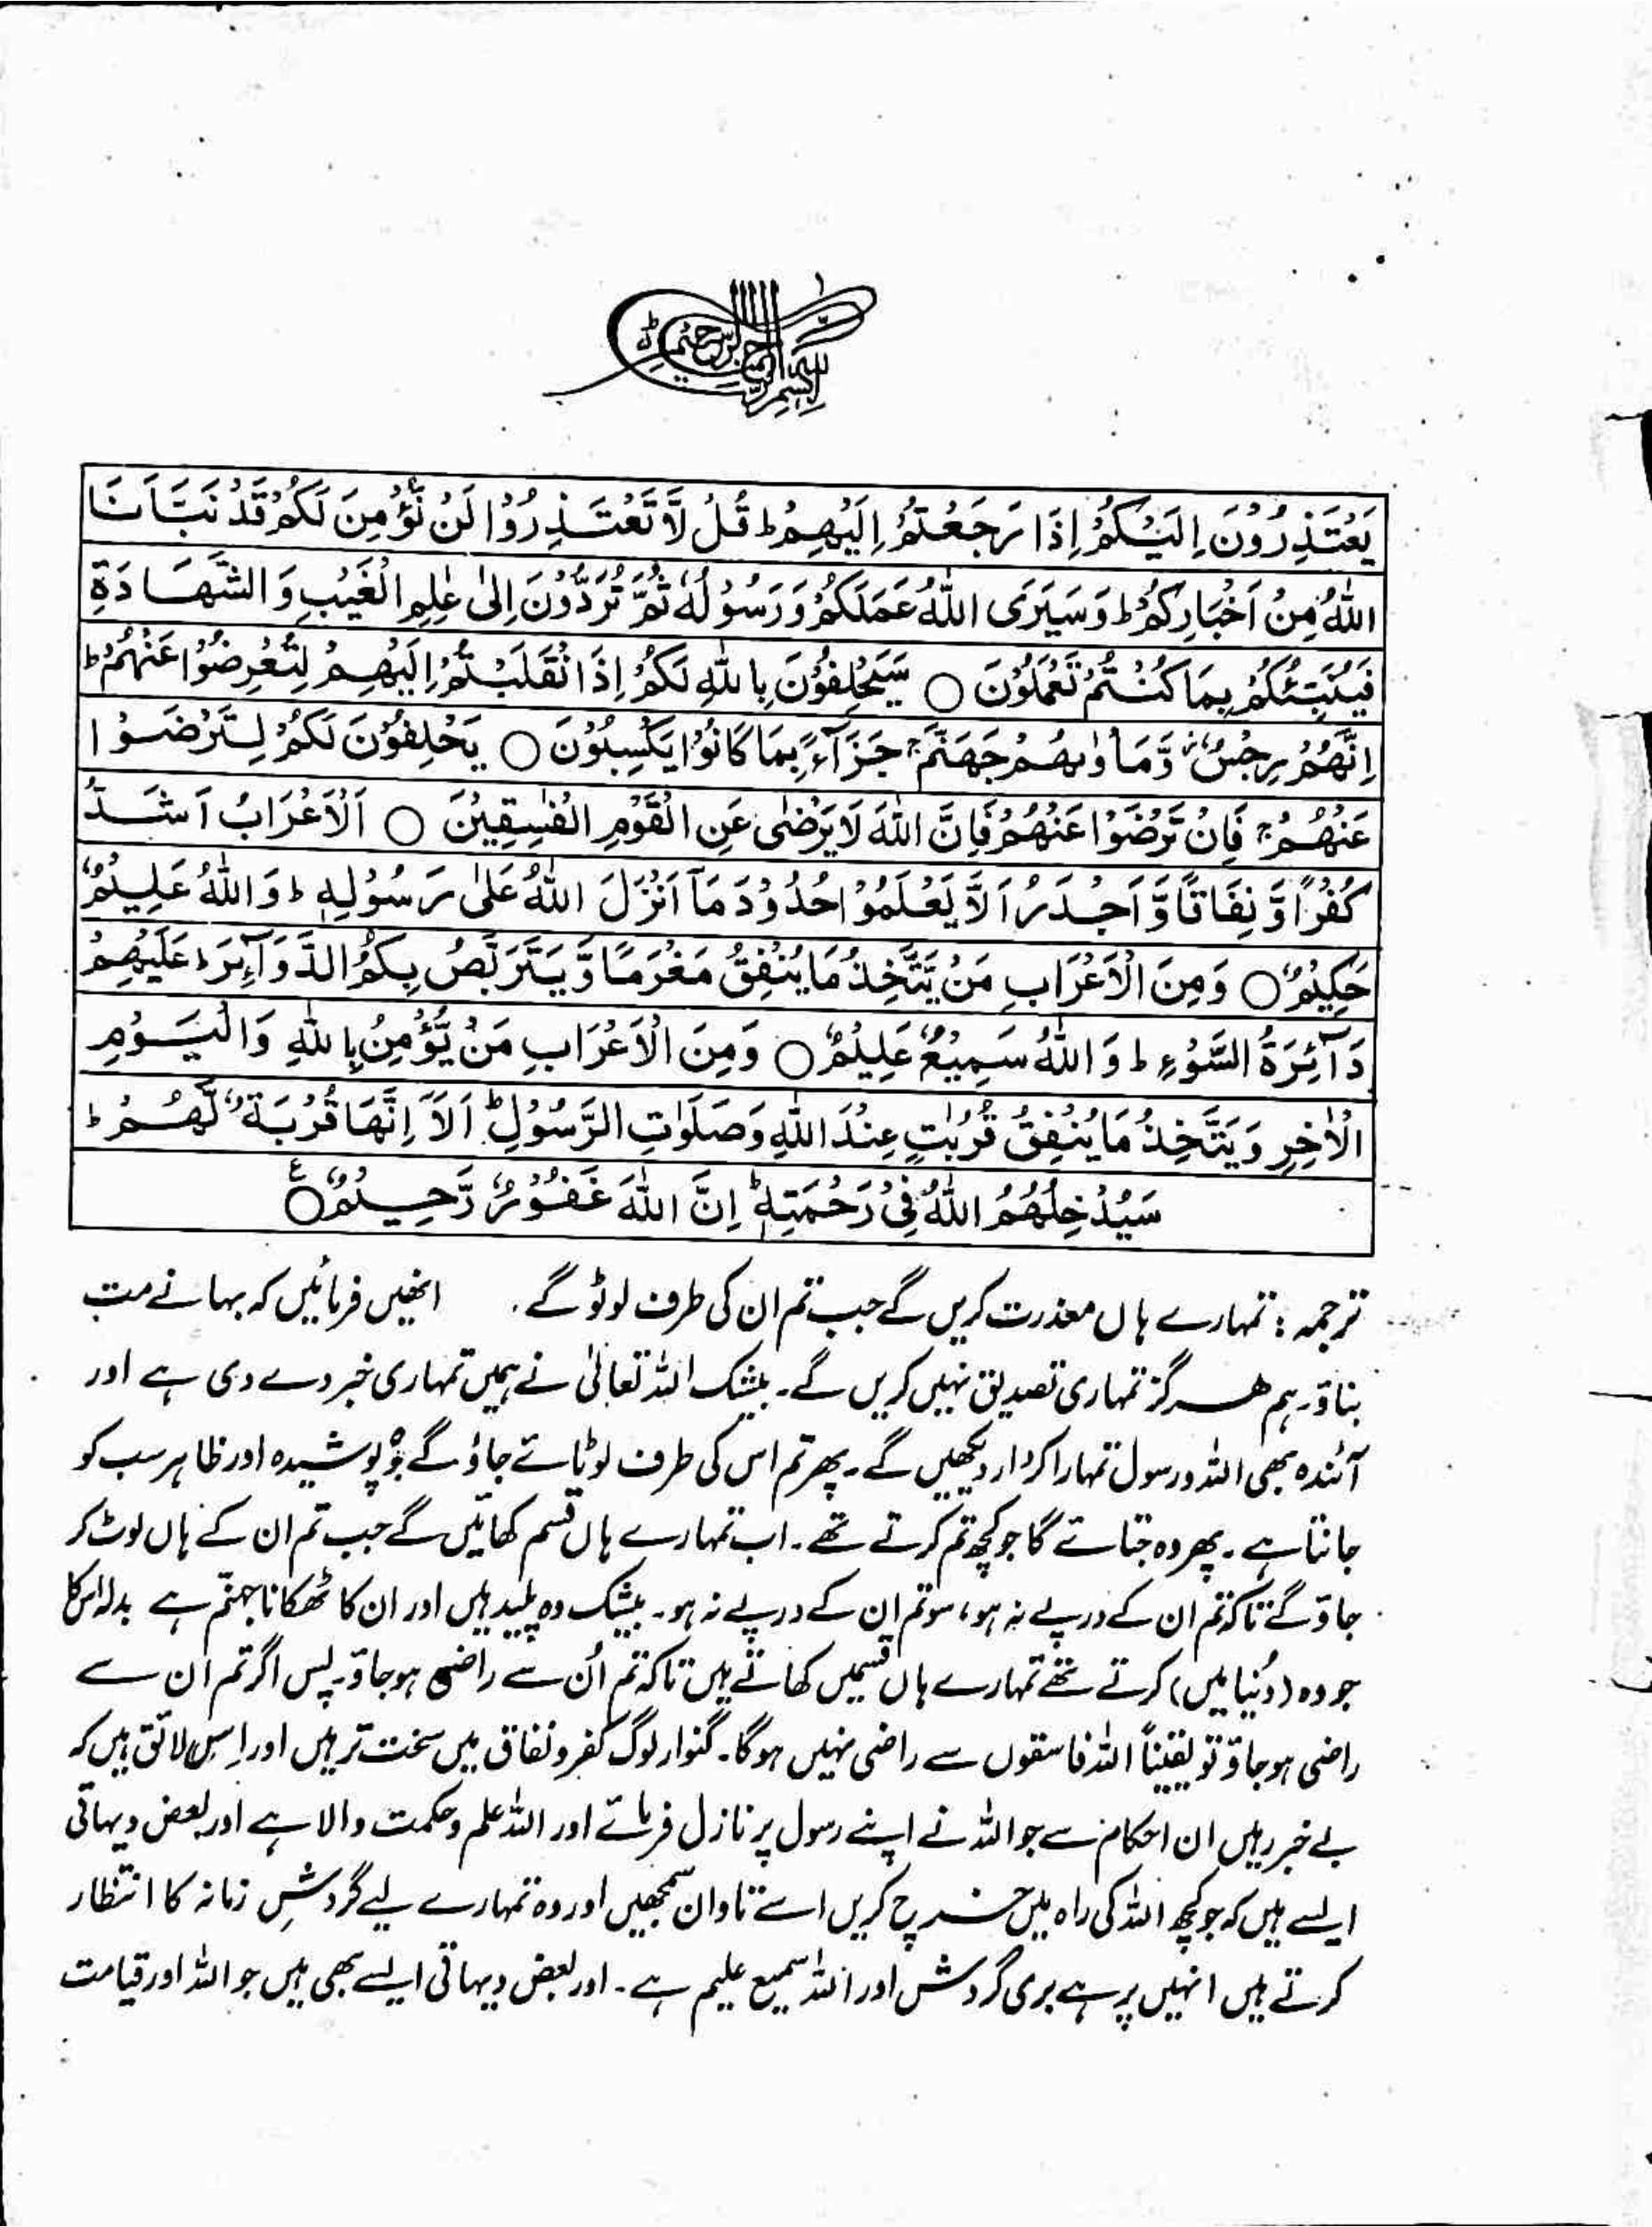 بسم اللہ الرحمن الرحیم ط
یَعْتَذِرُوْنَ اِلَیْکُمْ اِذَا رَجَعْتُمْ اِلَیْهِمْ ط قُلْ لَّا تَعْتَذِرُوْا لَنْ نُّؤْمِنَ لَکُمْ قَدْ نَبَّاَنَا
اللّٰهُ مِنْ اَخْبَارِکُمْ ط وَسَیَرَی اللّٰهُ عَمَلَکُمْ وَرَسُوْلُهٗ ثُمَّ تُرَدُّوْنَ اِلٰی عٰلِمِ الْغَیْبِ وَ الشَّهَادَةِ
فَیُنَبِّئُکُمْ بِمَا کُنْتُمْ تَعْمَلُوْنَ ○ سَیَحْلِفُوْنَ بِاللّٰهِ لَکُمْ اِذَا انْقَلَبْتُمْ اِلَیْهِمْ لِتُعْرِضُوْا عَنْهُمْ ط
اِنَّهُمْ رِجْسٌ ز وَّمَاْوٰىهُمْ جَهَنَّمُ ج جَزَآءًۢ بِمَا کَانُوْا یَکْسِبُوْنَ ○ یَحْلِفُوْنَ لَکُمْ لِتَرْضَوْا
عَنْهُمْ ج فَاِنْ تَرْضَوْا عَنْهُمْ فَاِنَّ اللّٰهَ لَا یَرْضٰی عَنِ الْقَوْمِ الْفٰسِقِیْنَ ○ اَلْاَعْرَابُ اَشَدُّ
کُفْرًا وَّ نِفَاقًا وَّ اَجْدَرُ اَلَّا یَعْلَمُوْا حُدُوْدَ مَآ اَنْزَلَ اللّٰهُ عَلٰی رَسُوْلِهٖ ط وَ اللّٰهُ عَلِیْمٌ
حَکِیْمٌ ○ وَ مِنَ الْاَعْرَابِ مَنْ یَّتَّخِذُ مَا یُنْفِقُ مَغْرَمًا وَّ یَتَرَبَّصُ بِکُمُ الدَّوَآئِرَ ط عَلَیْهِمْ
دَآئِرَةُ السَّوْءِ ط وَ اللّٰهُ سَمِیْعٌ عَلِیْمٌ ○ وَ مِنَ الْاَعْرَابِ مَنْ یُّؤْمِنُ بِاللّٰهِ وَ الْیَوْمِ
الْاٰخِرِ وَ یَتَّخِذُ مَا یُنْفِقُ قُرُبٰتٍ عِنْدَ اللّٰهِ وَ صَلَوٰتِ الرَّسُوْلِ ط اَلَاۤ اِنَّهَا قُرْبَةٌ لَّهُمْ ط
سَیُدْخِلُهُمُ اللّٰهُ فِیْ رَحْمَتِهٖ ط اِنَّ اللّٰهَ غَفُوْرٌ رَّحِیْمٌ ○ ع
ترجمہ : تمہارے ہاں معذرت کریں گے جب تم ان کی طرف لوٹو گے . انھیں فرمائیں کہ بہانے مت
بناؤ۔ ہم ہرگز تمہاری تصدیق نہیں کریں گے۔ بیشک اللہ تعالیٰ نے ہمیں تمہاری خبر دے دی ہے اور
آئندہ بھی اللہ ورسول تمہارا کردار دیکھیں گے۔ پھر تم اس کی طرف لوٹائے جاؤ گے جو پوشیدہ اور ظاہر سب کو
جانتا ہے۔ پھر وہ جتائے گا جو کچھ تم کرتے تھے۔ اب تمہارے ہاں قسم کھائیں گے جب تم ان کے ہاں لوٹ کر
جاؤ گے تاکہ تم ان کے درپے نہ ہو، سو تم ان کے درپے نہ ہو۔ بیشک وہ پلید ہیں اور ان کا ٹھکانا جہنّم ہے بدلہ اس کا
جو وہ (دُنیا میں) کرتے تھے تمہارے ہاں قسمیں کھاتے ہیں تاکہ تم اُن سے راضی ہوجاؤ۔ پس اگر تم ان سے
راضی ہوجاؤ تو یقیناً اللہ فاسقوں سے راضی نہیں ہوگا۔ گنوار لوگ کفر و نفاق میں سخت تر ہیں اور اِس لائق ہیں کہ
بے خبر رہیں ان احکام سے جو اللہ نے اپنے رسول پر نازل فرمائے اور اللہ علم وحکمت والا ہے اور بعض دیہاتی
ایسے ہیں کہ جو کچھ اللہ کی راہ میں خرچ کریں اسے تاوان سمجھیں اور وہ تمہارے لیے گردشِ زمانہ کا انتظار
کرتے ہیں انہیں پر ہے بری گردش اور اللہ سمیع علیم ہے۔ اور بعض دیہاتی ایسے بھی ہیں جو اللہ اور قیامت